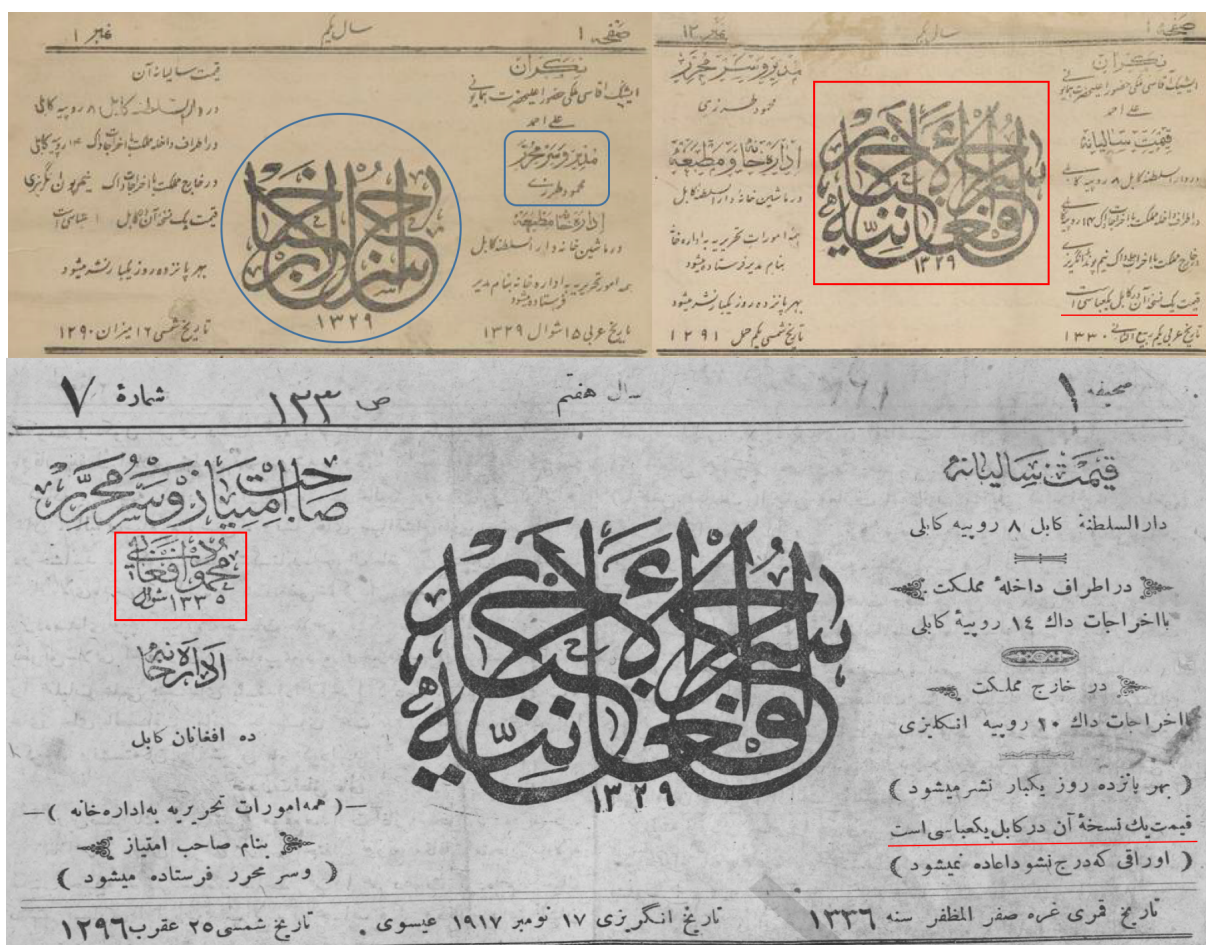 صفحه ۱ سال یکم نمبر ۱
نگران
ایشیک آقاسی ملکی حضور اعلیحضرت همایونی
علی احمد
مدیر و سر محرر
محمود طرزی
اداره خانه و مطبعه
در ماشین خانه دار السلطنه کابل
همه امور تحریریه به اداره خانه بنام مدیر
فرستاده میشود
تاریخ عربی ۱۵ شوال ۱۳۲۹
سراج الاخبار
۱۳۲۹
قیمت سالیانه آن
در دار السلطنه کابل ۸ روپیه کابلی
در اطراف داخله مملکت با اخراجات داک ۱۴ روپیه کابلی
در خارج مملکت با اخراجات داک نیم پوند انگریزی
قیمت یک نسخه آن در کابل ۱ عباسی است
بهر پانزده روز یکبار نشر میشود
تاریخ شمسی ۱۶ میزان ۱۲۹۰
صفحه ۱ سال یکم نمبر ۱۳
نگران
ایشیک آقاسی ملکی حضور اعلیحضرت همایونی
علی احمد
قیمت سالیانه
در دار السلطنه کابل ۸ روپیه کابلی
در اطراف داخله مملکت با اخراجات داک ۱۴ روپیه کابلی
در خارج مملکت با اخراجات داک نیم پوند انگریزی
قیمت یک نسخه آن در کابل یکعباسی است
تاریخ عربی یکم ربیع الثانی ۱۳۳۰
سراج الاخبار افغانیه
۱۳۲۹
مدیر و سر محرر
محمود طرزی
اداره خانه و مطبعه
در ماشین خانه دار السلطنه کابل
همه امورات تحریریه به اداره خانه
بنام مدیر فرستاده میشود
بهر پانزده روز یکبار نشر میشود
تاریخ شمسی یکم حمل ۱۲۹۱
صحیفه ۱ سال هفتم ص ۱۲۳ شمارهٔ ۷
قیمت سالیانهٔ
دار السلطنهٔ کابل ۸ روپیه کابلی
در اطراف داخلهٔ مملکت
بااخراجات داك ۱٤ روپیهٔ کابلی
در خارج مملکت
بااخراجات داك ۲۰ روپیه انکلیزی
( بهر پانزده روز یکبار نشر میشود )
قیمت یك نسخهٔ آن در کابل یکعباسی است
( اوراقی که درج نشود اعاده نمیشود )
سراج الاخبار افغانیه
۱۳۲۹
صاحب امتیاز و سر محرر
محمود افغانی
۱۳۳۵ شوال
اداره خانه
ده افغانان کابل
( همه امورات تحریریه به اداره خانه )
بنام صاحب امتیاز
( وسر محرر فرستاده میشود )
تاریخ قمری غره صفر المظفر سنه ۱۳۳٦ تاریخ انگریزی ۱۷ نومبر ۱۹۱۷ عیسوی . تاریخ شمسی ۲۵ عقرب ۱۲۹٦